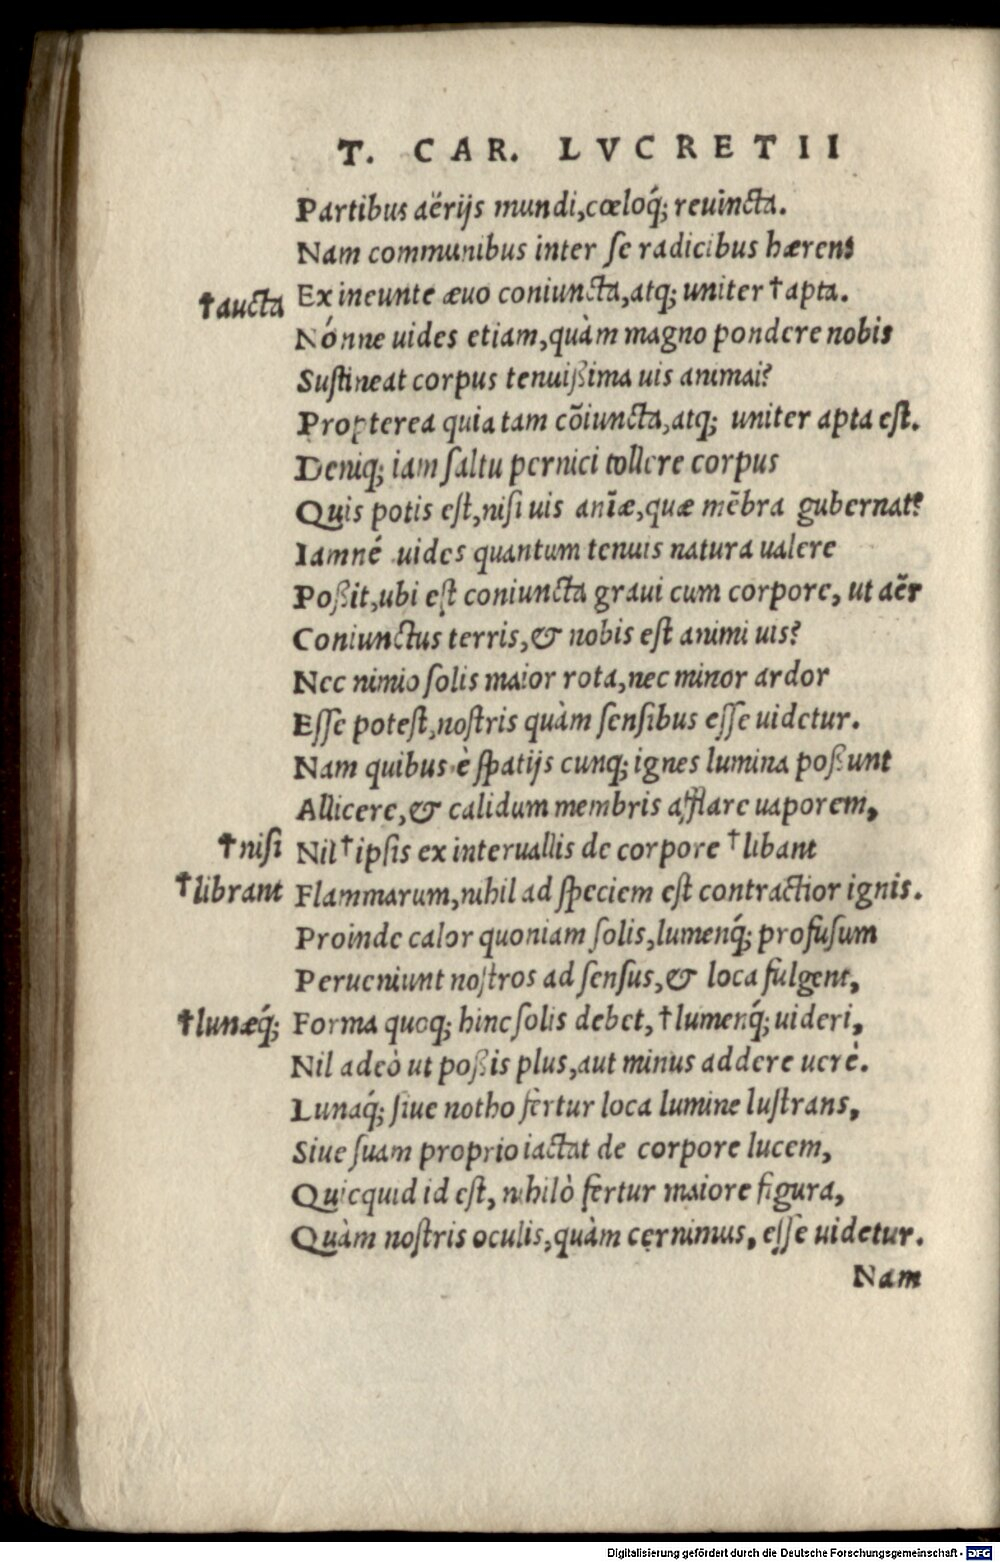 T. CAR. LVCRETII
Partibus aërijs mundi,cœloq́; reuincta.
Nam communibus inter ſe radicibus hærens
†aucta Ex ineunte æuo coniuncta,atq; uniter †apta.
Nónne uides etiam,quàm magno pondere nobis
Suſtineat corpus tenuißima uis animai?
Propterea quia tam cõiuncta,atq; uniter apta eſt.
Deniq; iam ſaltu pernici tollere corpus
Quis potis eſt,niſi uis aniǣ,quæ mẽbra gubernat?
Iamné uides quantum tenuis natura ualere
Poßit,ubi eſt coniuncta graui cum corpore, ut aër
Coniunctus terris,& nobis eſt animi uis?
Nec nimio ſolis maior rota,nec minor ardor
Eſſe poteſt,noſtris quàm ſenſibus eſſe uidetur.
Nam quibus è ſpatijs cunq; ignes lumina poßunt
Allicere,& calidum membris afflare uaporem,
†niſi Nil †ipſis ex interuallis de corpore †libant
†librant Flammarum,nihil ad ſpeciem eſt contractior ignis.
Proinde calor quoniam ſolis,lumenq́; profuſum
Perueniunt noſtros ad ſenſus,& loca fulgent,
†lunæq́; Forma quoq; hinc ſolis debet, †lumenq́; uideri,
Nil adeò ut poßis plus,aut minus addere uerè.
Lunaq́; ſiue notho fertur loca lumine luſtrans,
Siue ſuam proprio iactat de corpore lucem,
Quicquid id eſt, nihilò fertur maiore figura,
Quàm noſtris oculis,quàm cernimus, eſſe uidetur.
Nam
Digitalisierung gefördert durch die Deutsche Forschungsgemeinschaft - DFG